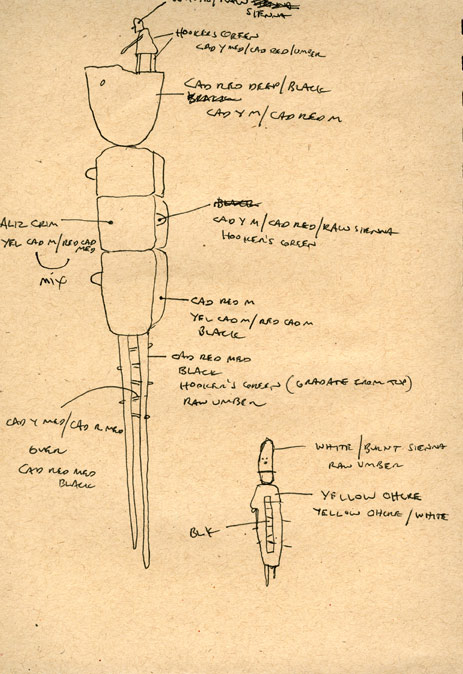 SIENNA
HOOKER'S GREEN
CAD Y MED/CAD RED/UMBER
CAD RED DEEP/BLACK
CAD Y M/CAD RED M
ALIZ CRIM
YEL CAD M/RED CAD
MED
MIX
CAD Y M/CAD RED/RAW SIENNA
HOOKER'S GREEN
CAD RED M
YEL CAD M/RED CAD M
BLACK
CAD RED MED
BLACK
HOOKER'S GREEN (GRADATE FROM TOP)
RAW UMBER
CAD Y MED/CAD R MED
OVER
CAD RED MED
BLACK
WHITE/BURNT SIENNA
RAW UMBER
YELLOW OHCRE
YELLOW OHCRE/WHITE
BLK